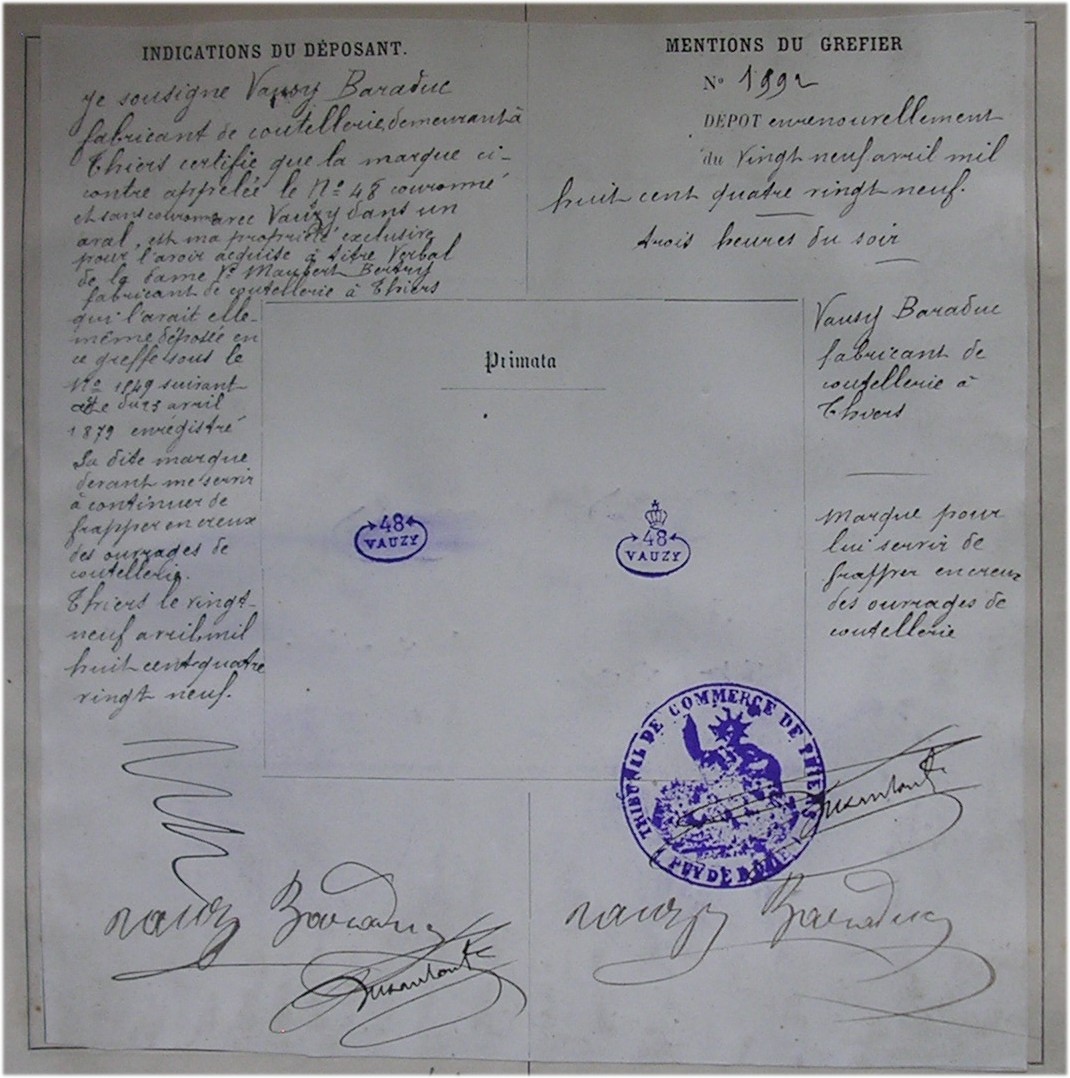 INDICATIONS DU DÉPOSANT.
Je sousigne Vauzy Baraduc
fabricant de coutellerie, demeurant à
Thiers certifie que la marque ci-
contre appelée le No 48 couronné
et sans couronne avec Vauzy dans un
oval, est ma propriété exclusive
pour l'avoir acquise à titre Verbal
de la dame Ve Maubert Bertry
fabricant de coutellerie à Thiers
qui l'avait elle-
même déposée en
ce greffe sous le
No 1949 suivant
acte du 23 avril
1879 enrégistré
La dite marque
devant me servir
à continuer de
frapper en creux
des ouvrages de
coutellerie.
Thiers le vingt-
neuf avril mil
huit cent quatre
vingt neuf.
Vauzy Baraduc
MENTIONS DU GREFIER
No 1992
DÉPOT en renouvellement
du Vingt neuf avril mil
huit cent quatre vingt neuf.
trois heures du soir
Vauzy Baraduc
fabricant de
coutellerie à
Thiers
Marque pour
lui servir de
frapper en creux
des ouvrages de
coutellerie
Primata
48
VAUZY
48
VAUZY
TRIBUNAL DE COMMERCE DE THIERS
(PUY DE DÔME)
Vauzy Baraduc